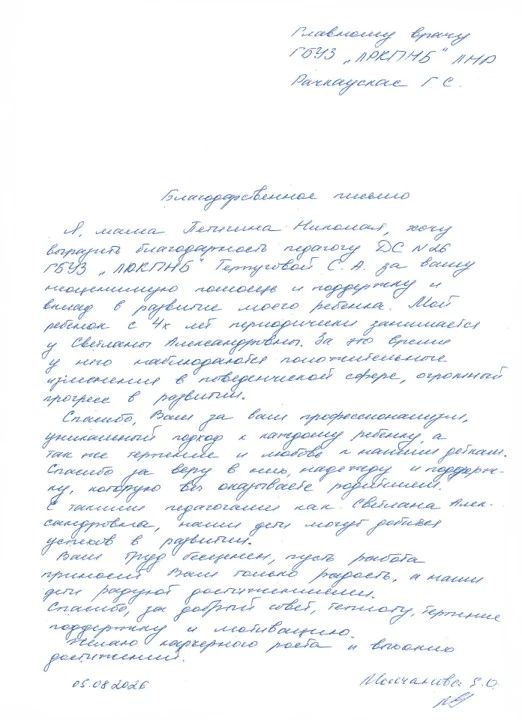 Главному врачу
ГБУЗ "ЛРКПНБ" ЛНР
Рачкаускас Г С.
Благодарственное письмо
Я, мама Пепина Николая, хочу
выразить благодарность педагогу ДС №26
ГБУЗ "ЛРКПНБ" Терпуговой С. А. за вашу
неоценимую помощь и поддержку и
вклад в развитие моего ребенка. Мой
ребенок с 4х лет периодически занимается
у Светланы Александровны. За это время
у него наблюдаются положительные
изменения в поведенческой сфере, огромный
прогресс в развитии.
Спасибо, Вам за ваш профессионализм,
уникальный подход к каждому ребенку, а
так же терпение и любовь к нашим деткам.
Спасибо за веру в них, надежду и поддерж-
ку, которую вы оказываете родителям.
С такими педагогами как Светлана Алек-
сандровна, наши дети могут добиться
успехов в развитии.
Ваш труд бесценен, пусть работа
приносит Вам только радость, а наши
дети радуют достижениями.
Спасибо, за добрый совет, теплоту, терпение
поддержку и мотивацию.
Желаю карьерного роста и высоких
достижений.
05.08.2026
Молчанова Е.О.